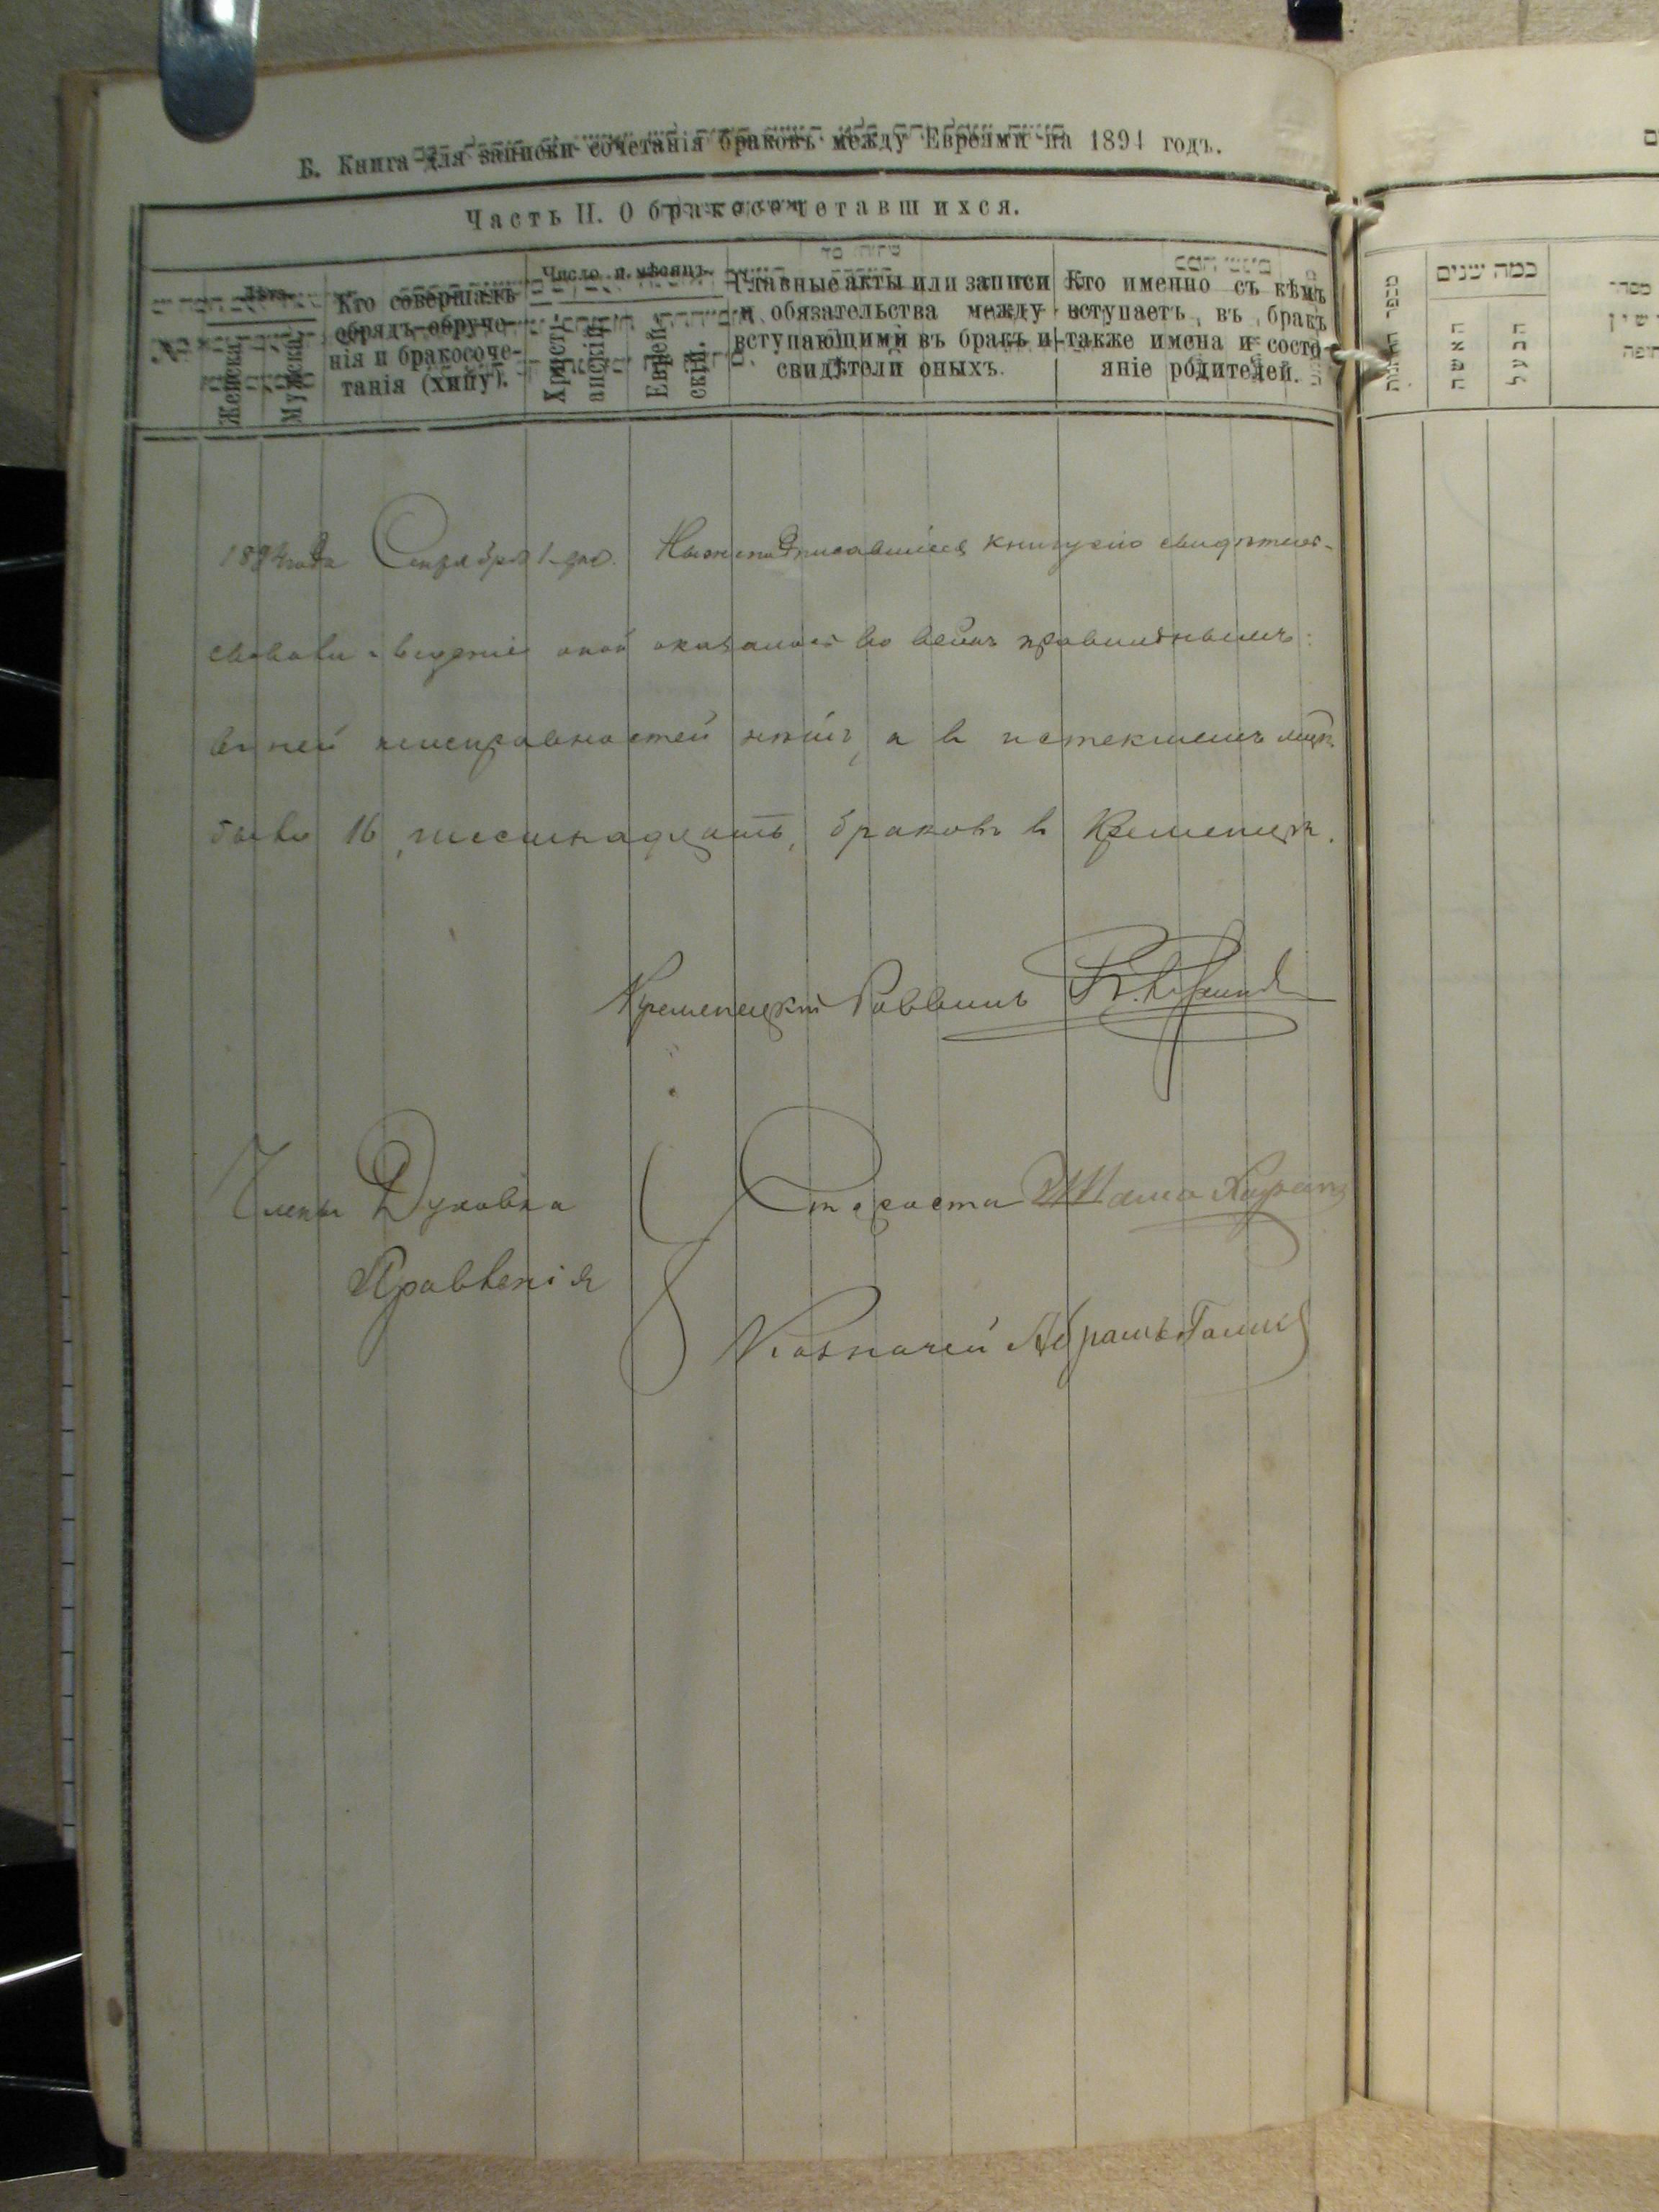 Б. Книга для записки сочетанія браковъ между Евреями на 1894 годъ.
Часть II. О бракосочетавшихся.
Лѣта.
Женска.
Мужска.
Кто совершалъ
обрядъ обруче-
нія и бракосоче-
танія (хипу).
Число и мѣсяцъ.
Христі-
анскій.
Еврей-
скій.
Главные акты или записи
и обязательства между
вступающими въ бракъ и
свидѣтели оныхъ.
Кто именно съ кѣмъ
вступаетъ въ бракъ
также имена и состо-
яніе родителей.
1894 года Сентября 1 дня. Нижеподписавшіеся книгу сію свидѣтель-
ствовали веденіе оной оказалось во всёмъ правильнымъ:
въ ней неисправностей нѣтъ, а в истекшемъ
было 16, шестнадцать, браковъ в Кременцѣ.
Кременецкій Раввинъ
Члены Духовна
Правленія
Староста
Казначей Абрамъ
כמה שנים
האשה
הבעל